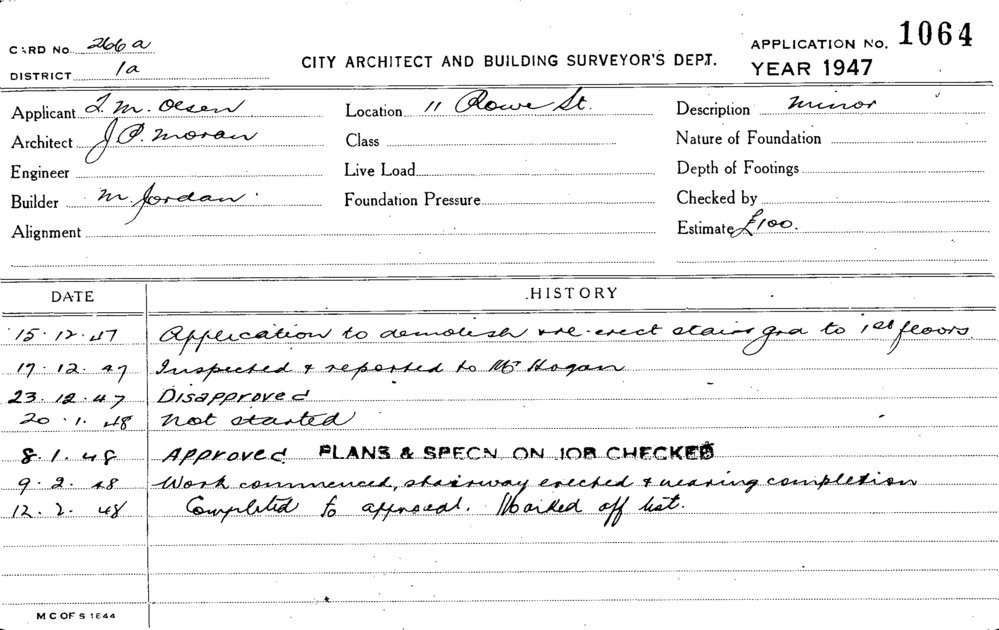 CARD No. 266a
DISTRICT 1a
CITY ARCHITECT AND BUILDING SURVEYOR'S DEPT.
APPLICATION No. 1064
YEAR 1947
Applicant T. M. Olsen
Architect J P. Moran
Engineer
Builder M. Jordan.
Alignment
Location 11 Rowe St.
Class
Live Load
Foundation Pressure
Description Minor
Nature of Foundation
Depth of Footings
Checked by
Estimate £100.
DATE HISTORY
15.12.47 Application to demolish & re-erect stairs grd to 1st floors.
17.12.47 Inspected & reported to Mr Hogan
23.12.47 Disapproved
20.1.48 Not started
8.1.48 Approved PLANS & SPECN ON JOB CHECKED
9.2.48 Work commenced, stairway erected & nearing completion
12.2.48 Completed to approval. Marked off list.
M C OF S 1844